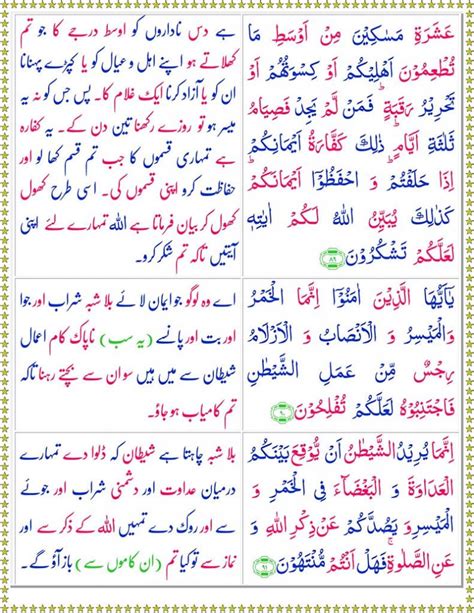 عَشَرَةِ مَسٰكِيۡنَ مِنۡ اَوۡسَطِ مَا
تُطۡعِمُوۡنَ اَهۡلِيۡكُمۡ اَوۡ كِسۡوَتُهُمۡ اَوۡ
تَحۡرِيۡرُ رَقَبَةٍ‌ فَمَنۡ لَّمۡ يَجِدۡ فَصِيَامُ
ثَلٰثَةِ اَيَّامٍ‌ ذٰلِكَ كَفَّارَةُ اَيۡمَانِكُمۡ
اِذَا حَلَفۡتُمۡ‌ وَ احۡفَظُوۡۤا اَيۡمَانَكُمۡ‌
كَذٰلِكَ يُبَيِّنُ اللّٰهُ لَكُمۡ اٰيٰتِهٖ
لَعَلَّكُمۡ تَشۡكُرُوۡنَ ﴿۸۹﴾
ہے دس ناداروں کو اوسط درجے کا جو تم
کھلاتے ہو اپنے اہل و عیال کو یا کپڑے پہنانا
ان کو یا آزاد کرنا ایک غلام کا۔ پس جس کو نہ یہ
میسر ہو تو روزے رکھنا تین دن کے۔ یہ کفارہ
ہے تمہاری قسموں کا جب تم قسم کھا لو اور
حفاظت کرو اپنی قسموں کی۔ اسی طرح کھول
کھول کر بیان فرماتا ہے اللہ تمہارے لئے اپنی
آیتیں تاکہ تم شکر کرو۔
يٰۤاَيُّهَا الَّذِيۡنَ اٰمَنُوۡۤا اِنَّمَا الۡخَمۡرُ
وَ الۡمَيۡسِرُ وَ الۡاَنۡصَابُ وَ الۡاَزۡلَامُ
رِجۡسٌ مِّنۡ عَمَلِ الشَّيۡطٰنِ
فَاجۡتَنِبُوۡهُ لَعَلَّكُمۡ تُفۡلِحُوۡنَ ﴿۹۰﴾
اے وہ لوگو جو ایمان لائے بلا شبہ شراب اور جوا
اور بت اور پانسے (یہ سب) ناپاک کام اعمال
شیطان سے میں ہیں سو ان سے بچتے رہنا تاکہ
تم کامیاب ہو جاؤ۔
اِنَّمَا يُرِيۡدُ الشَّيۡطٰنُ اَنۡ يُّوۡقِعَ بَيۡنَكُمُ
الۡعَدَاوَةَ وَ الۡبَغۡضَآءَ فِى الۡخَمۡرِ وَ
الۡمَيۡسِرِ وَ يَصُدَّكُمۡ عَنۡ ذِكۡرِ اللّٰهِ وَ
عَنِ الصَّلٰوةِ‌ ۚ فَهَلۡ اَنۡتُمۡ مُّنۡتَهُوۡنَ ﴿۹۱﴾
بلا شبہ چاہتا ہے شیطان کہ ڈلوا دے تمہارے
درمیان عداوت اور دشمنی شراب اور جوئے
سے اور روک دے تمہیں اللہ کے ذکر سے اور
نماز سے تو کیا تم (ان کاموں سے) باز آؤ گے۔